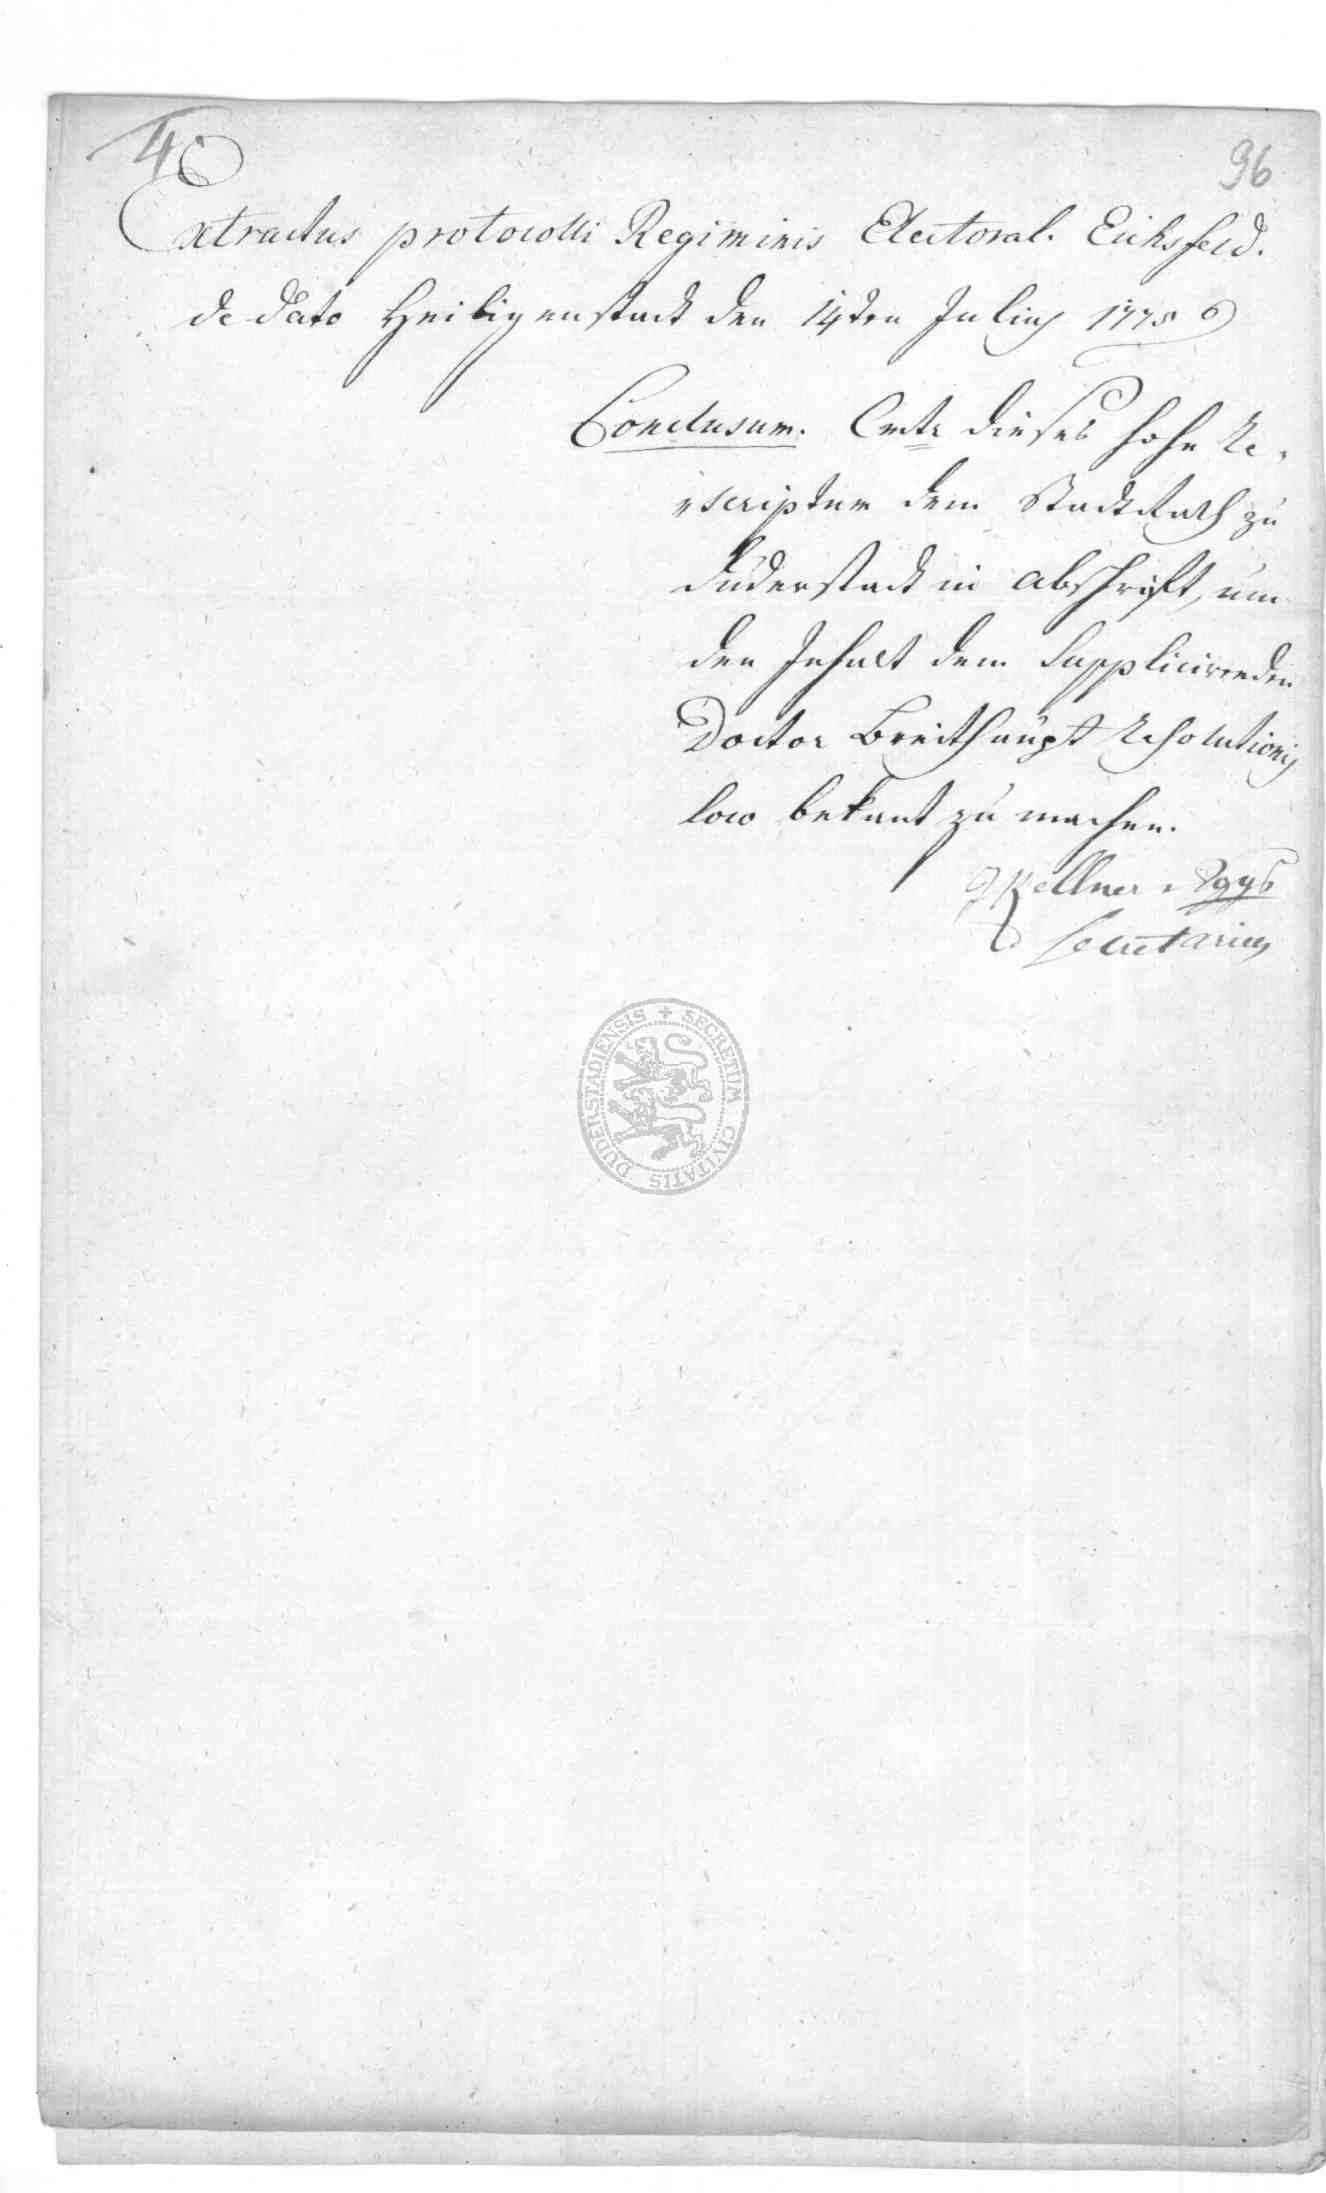 4
96
Extractus protocolli Regiminis Electoral. Eichsfeld.
de dato Heiligenstadt den 14ten Julius 1775
Conclusum. dieses hohe Re-
scriptum dem Stadtrath zu
Duderstadt in abschrift, um
den Inhalt dem Supplicirenden
Doctor Breithaupt Resolutionis
loco bekant zu machen.
Kellner
Secretarius
SECRETUM CIVITATIS DUDERSTADIENSIS